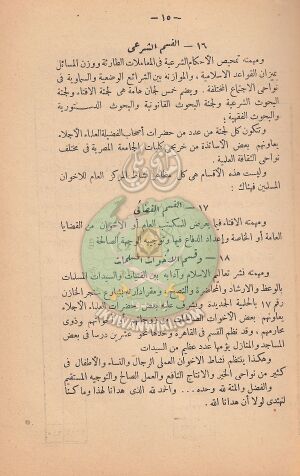 — ١٥ —
١٦ — القسم الشرعى
ومهمته تمحيص الأحكام الشرعية فى المعاملات الطارئة ووزن المسائل
بميزان القواعد الاسلامية ، والموازنة بين الشرائع الوضعية والسماوية فى
نواحى الاجتماع المختلفة . ويضم خمس لجان عامة هى لجنة الافتاء ولجنة
البحوث الشرعية ولجنة البحوث القانونية والبحوث الدستورية
والبحوث الفقهية ؛
وتتكون كل لجنة من عدد من حضرات أصحاب الفضيلة العلماء الأجلاء
يعاونهم بعض الأساتذة من خريجى كليات الجامعة المصرية فى مختلف
نواحى الثقافة العلمية .
وليست هذه الأقسام هى كل مظاهر نشاط المركز العام للاخوان
المسلمين فهناك :
١٧ — القسم القضائى
ومهمته الافتاء فيما يعرض للمكتب العام أو الاخوان من القضايا
العامة أو الخاصة وإعداد الدفاع فيها وتوجيهه الوجهة الصالحة
١٨ — قسم الأخوات المسلمات
ومهمته نشر تعاليم الاسلام وآدابه بين الفتيات والسيدات المسلمات
بالوعظ والارشاد والمحاضرة
رقم ١٧ الحلمية الجديدة ويشرف عليه بعض حضرات العلماء الأجلاء
يعاونهم بعض الأخوات
محارمهم ، وقد نظم القسم فى القاهرة وحدها خمسة عشر درسا فى بعض
المساجد والمنازل يؤمها عدد عظيم من السيدات
وهكذا ينتظم نشاط الاخوان العملى الرجال والنساء والأطفال فى
كثير من نواحى الخير والانتاج النافع والعمل الصالح والتوجيه المستقيم
والفضل والمنة لله وحده... والحمد لله الذى هدانا لهذا وما كنا
لنهتدى لولا أن هدانا الله .